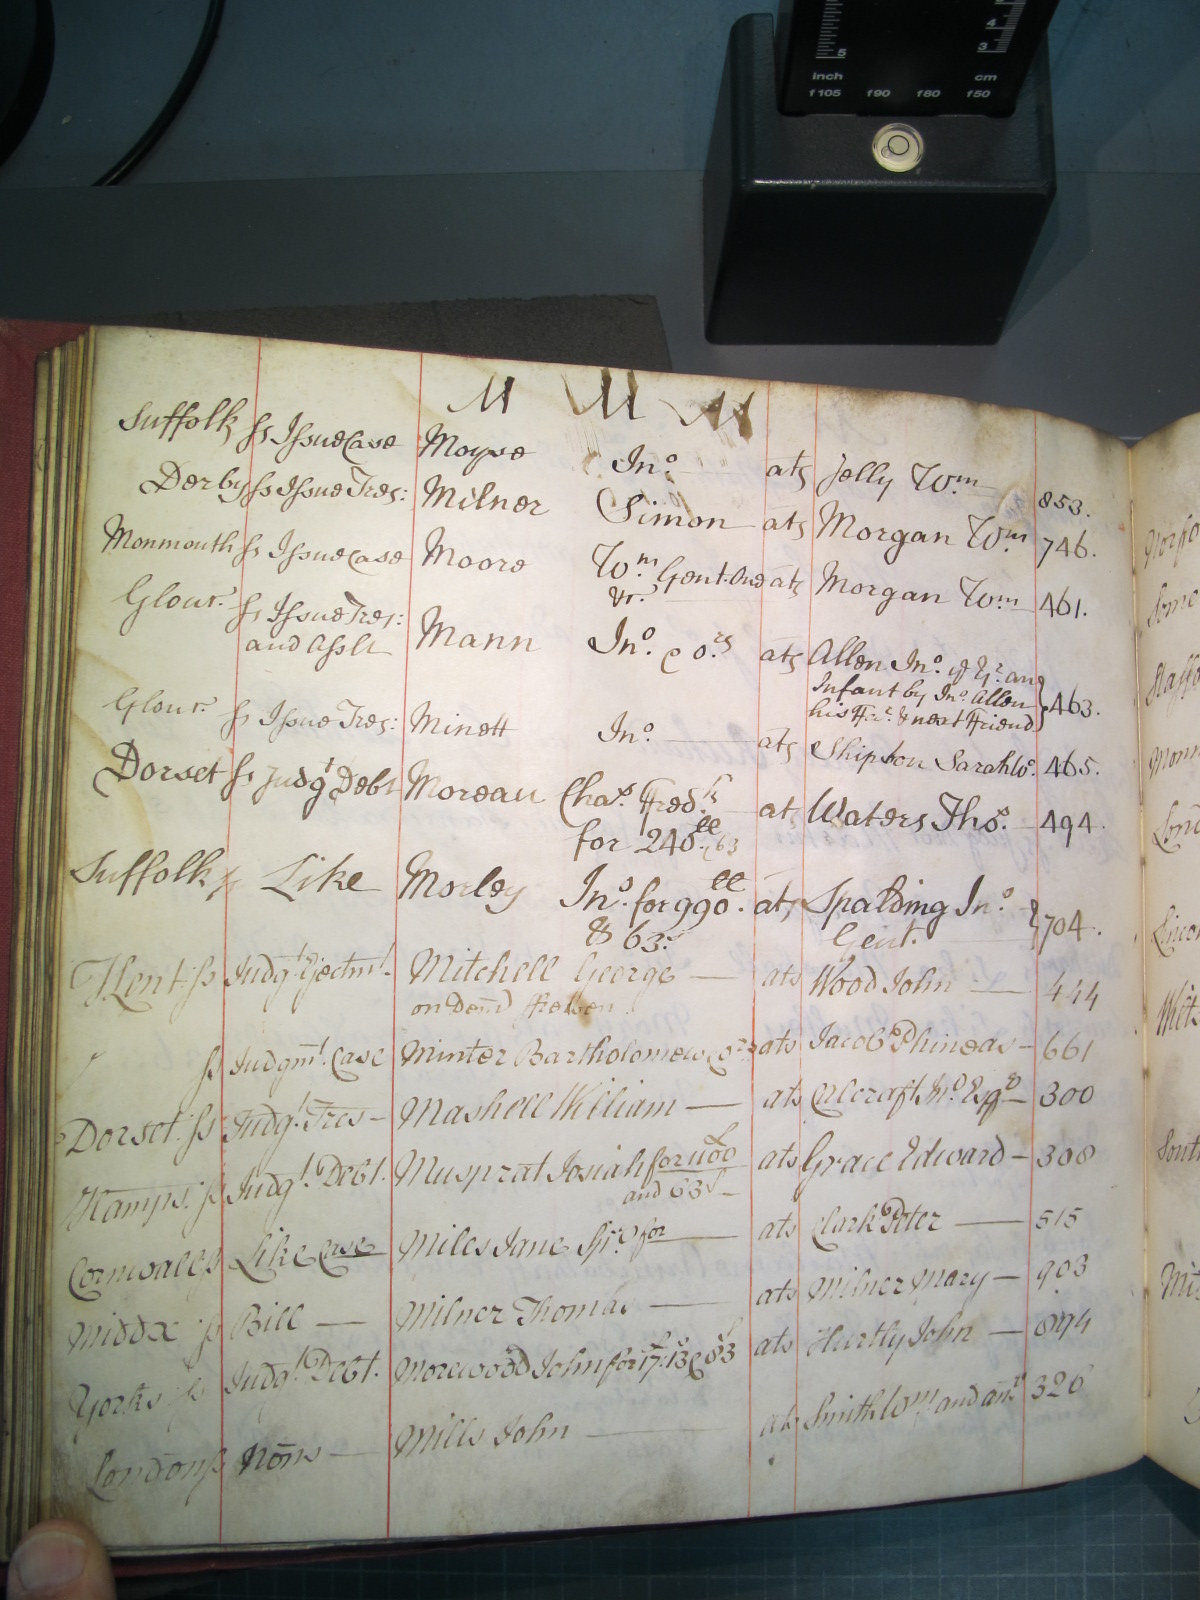 5
4
3
inch cm
f105 f90 f80 f50
M M M
Suffolk ss Issue Case Moyse Jno. ats Jelly Wm 853.
Derby ss Issue Tres: Milner Simon ats Morgan Wm 746.
Monmouth ss Issue Case Moore Wm. Gent. One ats Morgan Wm 461.
&c.
Glour. ss Issue Tres: Mann Jno. & ors ats Allen Jno. yr. an
and Asslt Infant by Jno. Allen 463.
his Fr. & next ffriend
Glour. ss Issue Tres: Minett Jno. ats Shipton Sarah 465.
Dorset ss Judgt Debt Moreau Chas. ffredk ats Waters Thos. 494.
for 246ll. 63
Suffolk ss Like Morley Jno. for 990ll. ats Spalding Jno. 704.
& 63s Gent.
Kent ss Judgt Ejectmt. Mitchell George ats Wood John 444
on Demd
ss Judgmt. Case Minter Bartholomew & ors ats Jacob Phineas 661
Dorset ss Judgt. Tres Mashell William ats Calcraft Jno. Esqr 300
Hamps. ss Judgt. Debt. Musprat Josiah for 1100 ats Grace Edward 308
and 63s
Cornwall ss Like Case Miles Jane Spr. for ats Clark Peter 515
Middx ss Bill Milner Thomas ats Milner Mary 903
Yorks ss Judgt. Debt. Morewood John for 17: 13 & 83 ats Hurtly John 894
London ss Nons Mills John ats Smith Wm. and anr 326